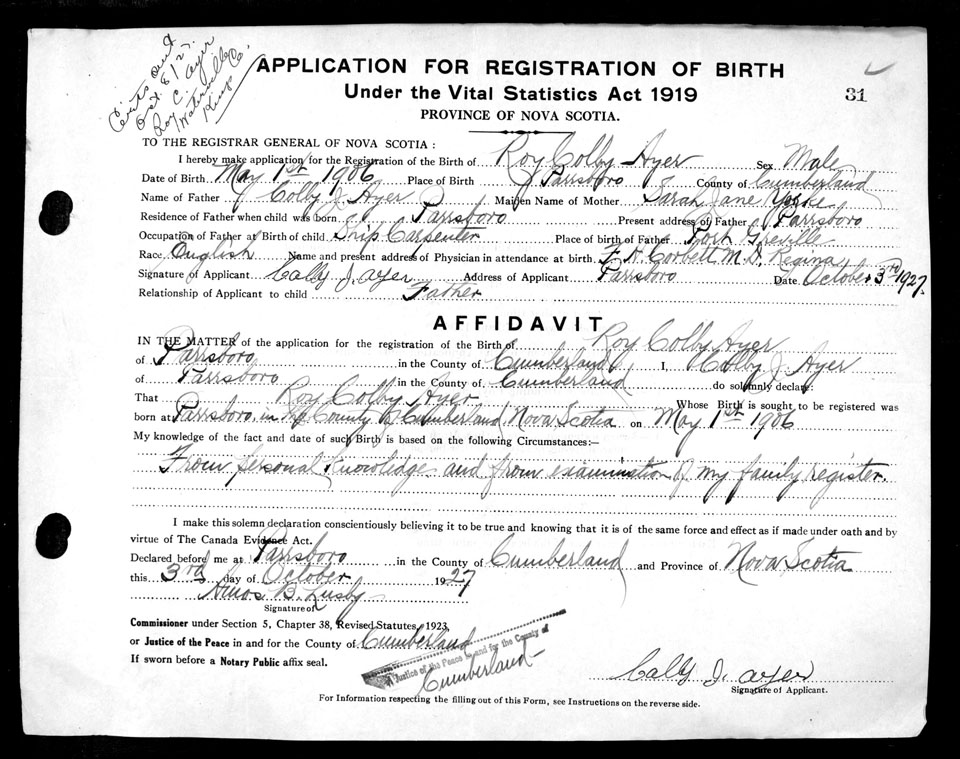 Certs sent
Oct. 8/27.
Roy C. Ayer
Waterville
Kings Co.
APPLICATION FOR REGISTRATION OF BIRTH
Under the Vital Statistics Act 1919
31
PROVINCE OF NOVA SCOTIA.
TO THE REGISTRAR GENERAL OF NOVA SCOTIA:
I hereby make application for the Registration of the Birth of Roy Colby Ayer Sex Male
Date of Birth May 1st 1906 Place of Birth Parrsboro County of Cumberland
Name of Father Colby J. Ayer Maiden Name of Mother Sarah Jane Yorke
Residence of Father when child was born Parrsboro Present address of Father Parrsboro
Occupation of Father at Birth of child Ship Carpenter Place of birth of Father Port Greville
Race English Name and present address of Physician in attendance at birth. F. A. Corbett M.D. Regina
Signature of Applicant Colby J. Ayer Address of Applicant Parrsboro Date October 3rd 1927.
Relationship of Applicant to child Father
AFFIDAVIT
IN THE MATTER of the application for the registration of the Birth of Roy Colby Ayer
of Parrsboro in the County of Cumberland I, Colby J. Ayer
of Parrsboro in the County of Cumberland do solemnly declare:
That Roy Colby Ayer Whose Birth is sought to be registered was
born at Parrsboro, in the County of Cumberland Nova Scotia on May 1st 1906
My knowledge of the fact and date of such Birth is based on the following Circumstances:—
From personal knowledge and from examination of my family register.
I make this solemn declaration conscientiously believing it to be true and knowing that it is of the same force and effect as if made under oath and by
virtue of The Canada Evidence Act.
Declared before me at Parrsboro in the County of Cumberland and Province of Nova Scotia
this 3rd day of October 1927
Amos B. Lusby
Signature of
Commissioner under Section 5, Chapter 38, Revised Statutes, 1923,
or Justice of the Peace in and for the County of Cumberland
If sworn before a Notary Public affix seal.
A Justice of the Peace in and for the County of
Cumberland
Colby J. Ayer
Signature of Applicant.
For Information respecting the filling out of this Form, see Instructions on the reverse side.